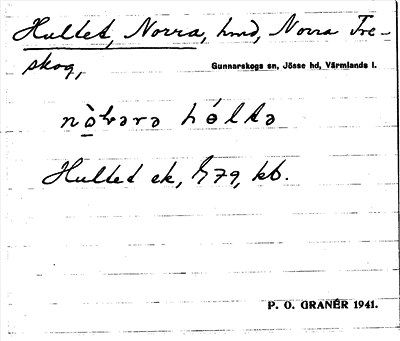 Hultet, Norra, hmd, Norra Tre-
skog,
Gunnarskogs sn, Jösse hd, Värmlands l.
nòrərə hóltə
Hultet ek, 79, kb.
P. O. GRANÉR 1941.